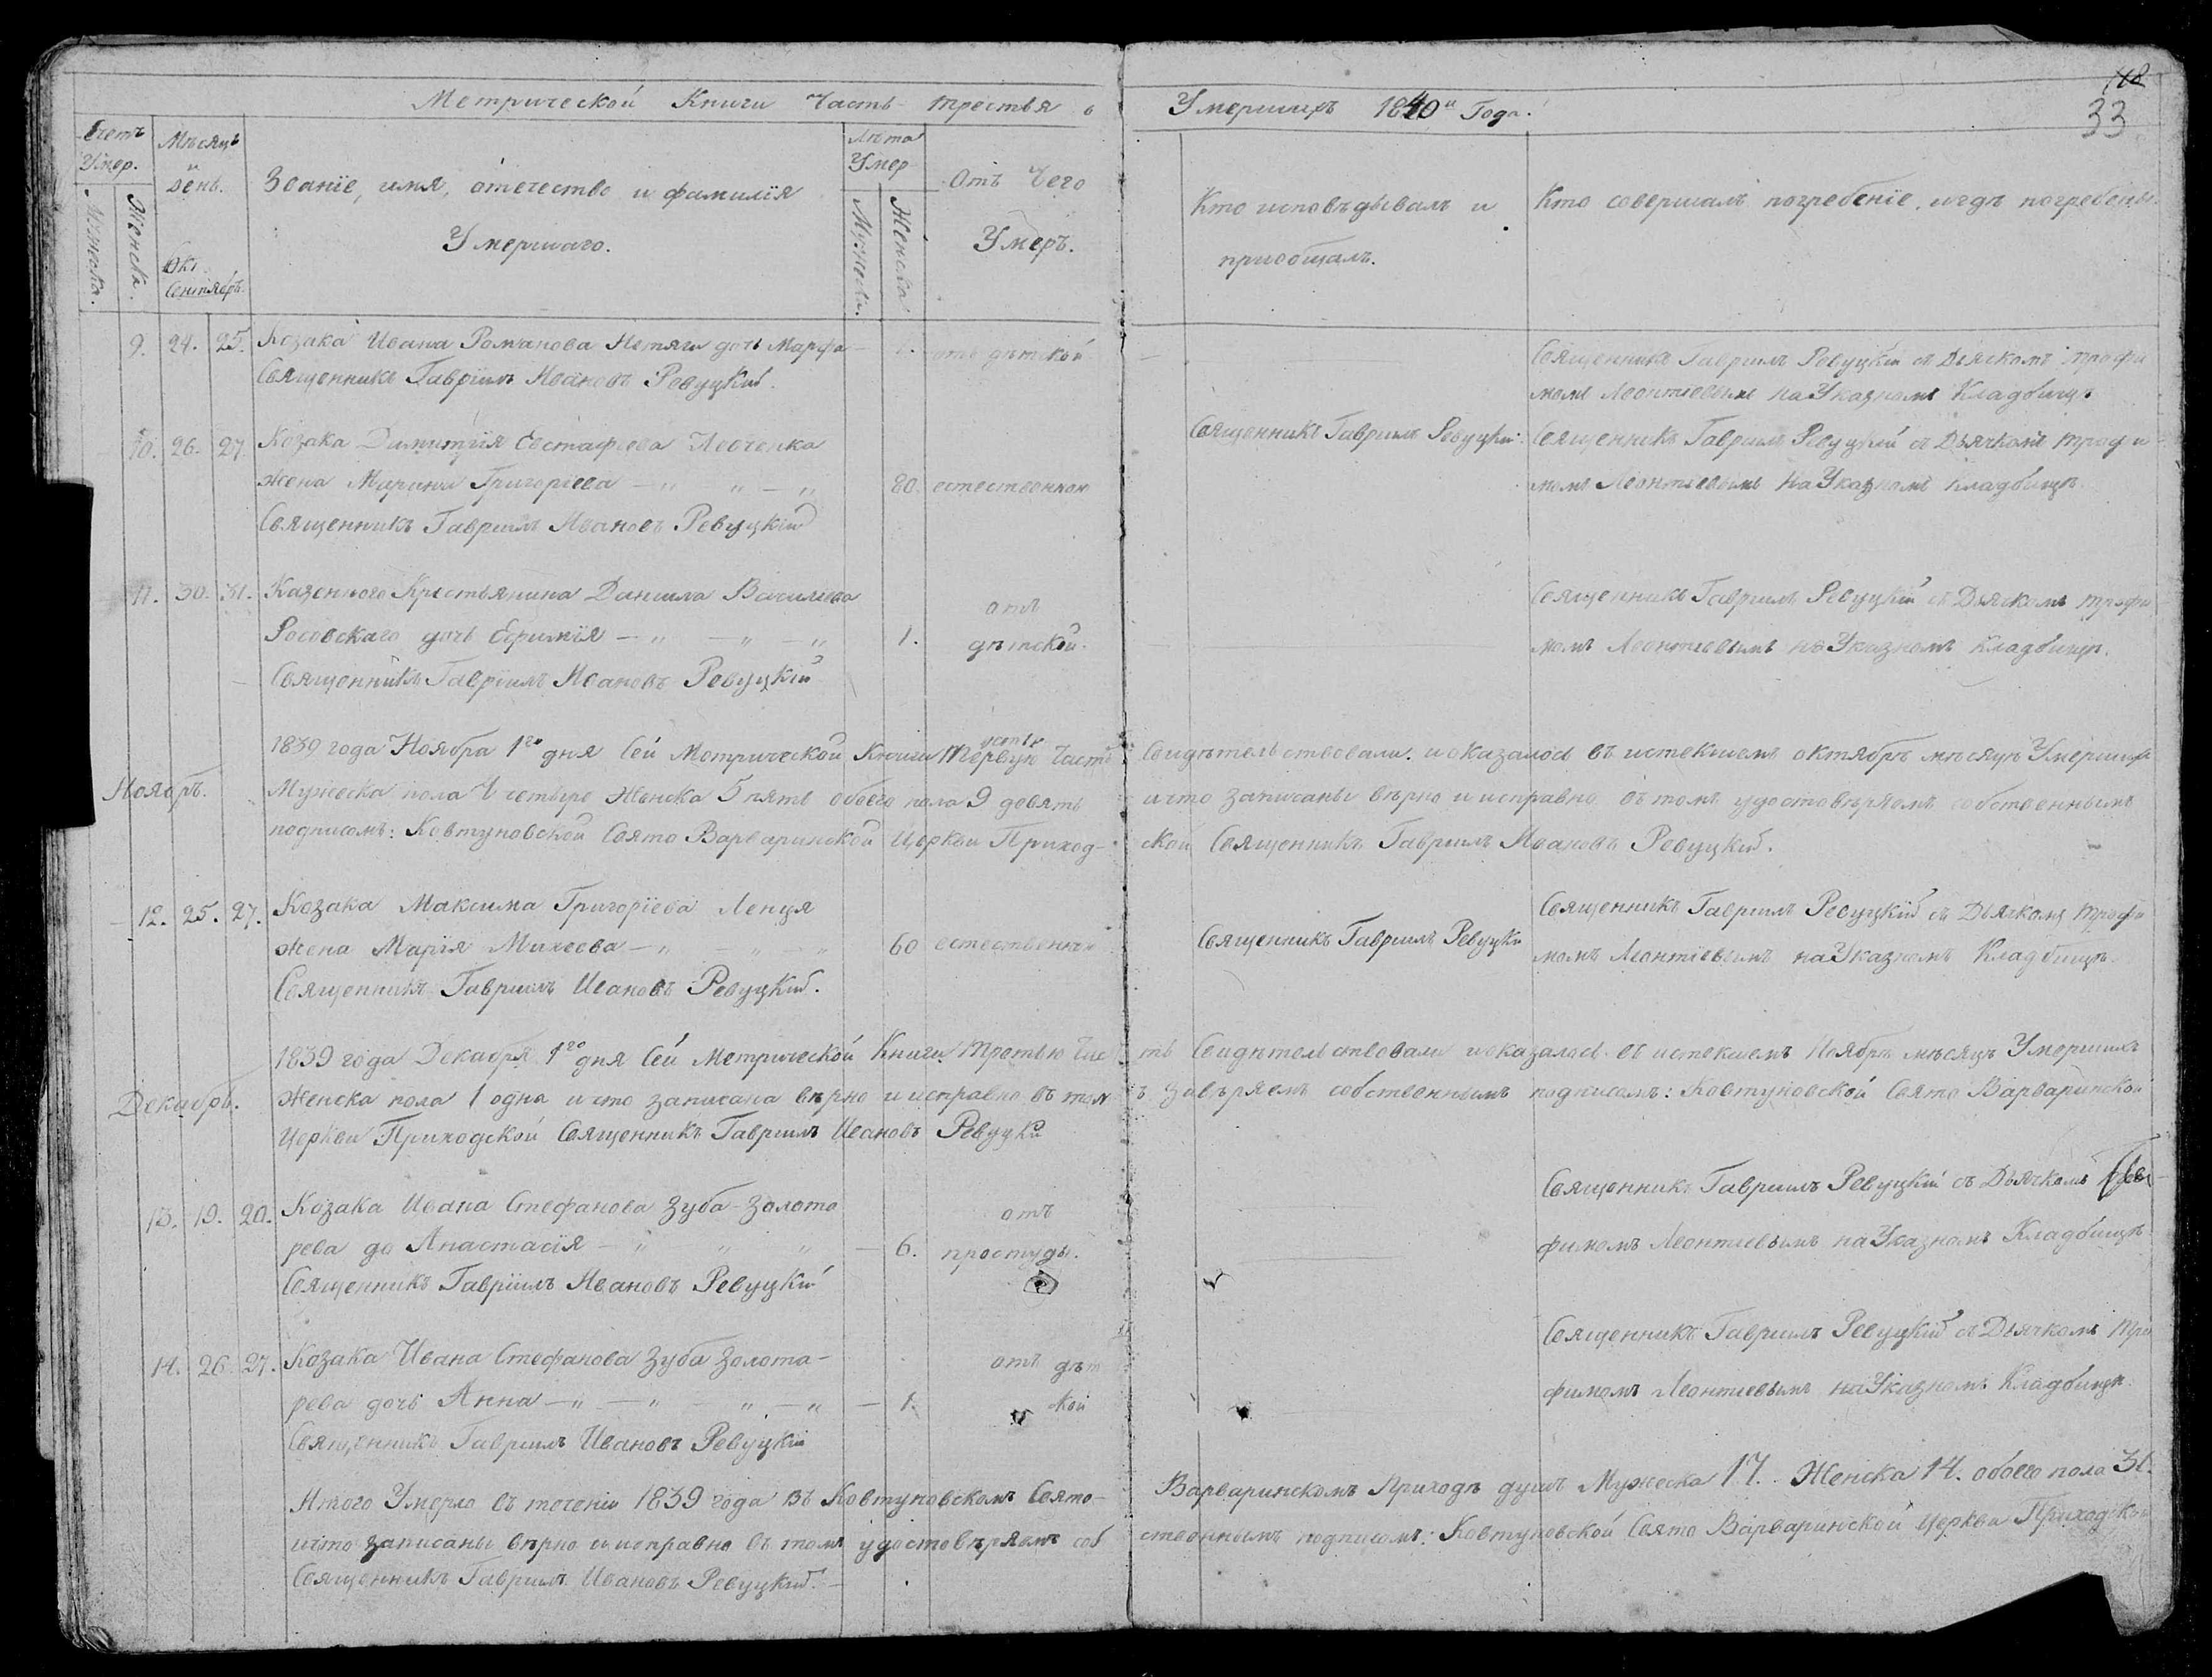 Метрической Книги Часть третья о Умершихъ 1840го Года.
118
33
Счетъ Умер.
Мужеска.
Женска.
Мѣсяцъ и день.
Окт
Сентябрь
Званіе, имя, отечество и фамилія
Умершаго.
Лѣта Умер
Мужеска.
Женска.
Отъ Чего
Умеръ.
Кто исповѣдывалъ и
приобщалъ.
Кто совершалъ погребеніе, и гдѣ погребены.
9. 24. 25. Козака Ивана Романова дочь Марфа отъ дѣтской Священникъ Гавріилъ Ревуцкій съ Дьячкомъ Трофи
Священникъ Гавріилъ Ивановъ Ревуцкій. момъ Леонтіевымъ на Указномъ Кладбищѣ
10. 26. 27. Козака Димитрія Евстафіева Левченка Священникъ Гавріилъ Ревуцкій. Священникъ Гавріилъ Ревуцкій съ Дьячкомъ Трофи
жена Марина Григоріева —„ „ —„ 80. естественною момъ Леонтіевымъ на Указномъ Кладбищѣ.
Священникъ Гавріилъ Ивановъ Ревуцкій
11. 30. 31. Казенного Крестьянина Данила Василіева отъ Священникъ Гавріилъ Ревуцкій съ Дьячкомъ Трофи
Росовскаго дочь Ефимія —„ —„ —„ 1. дѣтской. момъ Леонтіевымъ на Указномъ Кладбищѣ.
Священникъ Гавріилъ Ивановъ Ревуцкій
1839 года Ноября 1го дня Сей Метрической Книги первую Часть Свидѣтельствовали. и оказалось въ истекшемъ октябрѣ мѣсяцѣ Умершихъ
Ноябрь. Мужеска пола 4 четыре Женска 5 пять обоего пола 9 девять и что записаны вѣрно и исправно въ томъ удостовѣряемъ собственнымъ
подписомъ: Ковтуновской Свято Варваринской Церкви Приход- ской Священникъ Гавріилъ Ивановъ Ревуцкій.
12. 25. 27. Козака Максима Григоріева Ленця Священникъ Гавріилъ Ревуцкій съ Дьячкомъ Трофи
жена Марія Михеева —„ „ „ 60 естественною Священникъ Гавріилъ Ревуцкі момъ Леонтіевымъ на Указномъ Кладбищѣ.
Священникъ Гавріилъ Ивановъ Ревуцкій.
1839 года Декабря 1го дня Сей Метрической Книги Третью Час ть Свидѣтельствовали и оказалось въ истекшемъ Ноябрѣ мѣсяцѣ Умершихъ
Декабрь. Женска пола 1 одна и что записана вѣрно и исправно въ том ъ завѣряемъ собственнымъ подписомъ: Ковтуновской Свято Варваринской
Церкви Приходской Священникъ Гавріилъ Ивановъ Ревуцкій
13. 19. 20. Козака Ивана Стефанова Зуба-Золото отъ Священникъ Гавріилъ Ревуцкій съ Дьячкомъ
рева до Анастасія —„ „ „ — 6. простуды. фимомъ Леонтіевымъ на Указномъ Кладбищѣ
Священникъ Гавріилъ Ивановъ Ревуцкій
14. 26. 27. Козака Ивана Стефанова Зуба Золота- отъ дѣт Священникъ Гавріилъ Ревуцкій съ Дьячкомъ Тро
рева дочь Анна —„ —„ „ —„ — 1. кой фимомъ Леонтіевымъ на Указномъ Кладбищѣ.
Священникъ Гавріилъ Ивановъ Ревуцкій
Итого Умерло въ теченіи 1839 года въ Ковтуновскомъ Свято- Варваринскомъ Приходѣ душъ Мужеска 17. Женска 14. обоего пола 31.
и что записаны вѣрно и исправно въ томъ удостовѣряемъ соб ственнымъ подписомъ: Ковтуновской Свято Варваринской Церкви Приходской
Священникъ Гавріилъ Ивановъ Ревуцкій. —